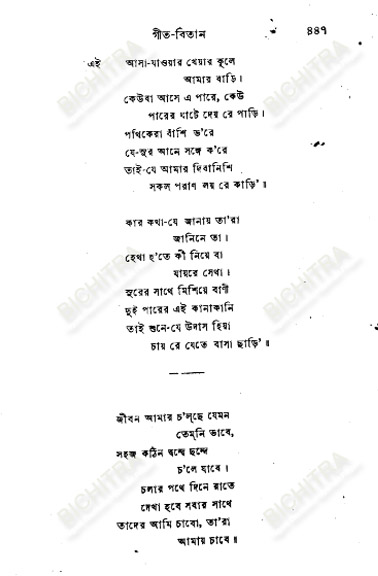 গীত-বিতান ৪৪৭
এই আসা-যাওয়ার খেয়ার কূলে
আমার বাড়ি।
কেউবা আসে এ পারে, কেউ
পারের ঘাটে দেয় রে পাড়ি।
পথিকেরা বাঁশি ভ'রে
যে-সুর আনে সঙ্গে ক'রে
তাই-যে আমার দিবানিশি
সকল পরাণ লয় রে কাড়ি'॥
কার কথা-যে জানায় তা'রা
জানিনে তা।
হেথা হ'তে কী নিয়ে বা
যায়রে সেথা।
সুরের সাথে মিশিয়ে বাণী
দুই পারের এই কানাকানি
তাই শুনে-যে উদাস হিয়া
চায় রে যেতে বাসা ছাড়ি'॥
জীবন আমার চ'লছে যেমন
তেম্‌নি ভাবে,
সহজ কঠিন দ্বন্দ্বে ছন্দে
চ'লে যাবে।
চলার পথে দিনে রাতে
দেখা হবে সবার সাথে
তাদের আমি চাবো, তা'রা
আমায় চাবে॥
BICHITRA
BICHITRA
BICHITRA
BICHITRA
BICHITRA
BICHITRA